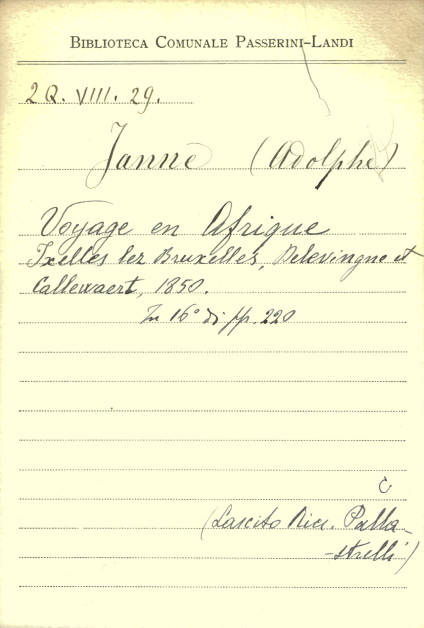 BIBLIOTECA COMUNALE PASSERINI-LANDI
2Q. VIII. 29.
Janne (Adolphe)
Voyage en Afrique
Ixelles lez Bruxelles, Delevingne et
Callewaert, 1850.
In 16° di pp. 220
C
(Lascito Nice. Palla-
-strelli)